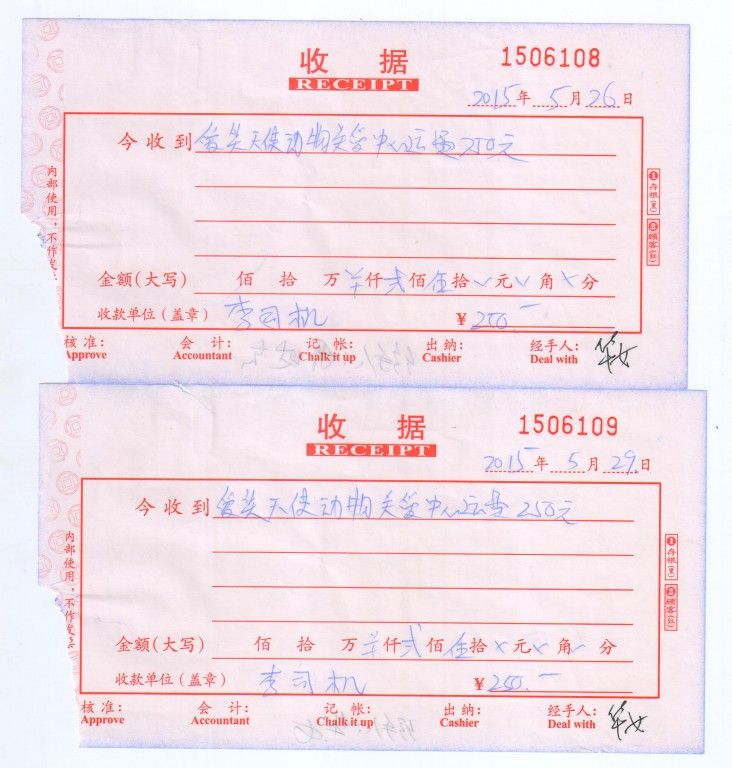 收 据
1506108
RECEIPT
2015年 5月 26日
今收到 爱芙天使动物关爱中心运费 250元
内部使用，不作发
①存根(黑)
②顾客(红)
金额(大写) 佰 拾 万 仟 贰 佰 伍 拾 元 角 分
收款单位(盖章) 李司机 ¥ 250 —
核 准: 会 计: 记 帐: 出 纳: 经手人:
Approve Accountant Chalk it up Cashier Deal with
收 据
1506109
RECEIPT
2015年 5月 29日
今收到 爱芙天使动物关爱中心运费 250元
内部使用，不作发
①存根(黑)
②顾客(红)
金额(大写) 佰 拾 万 仟 贰 佰 伍 拾 元 角 分
收款单位(盖章) 李司机 ¥ 250. —
核 准: 会 计: 记 帐: 出 纳: 经手人:
Approve Accountant Chalk it up Cashier Deal with